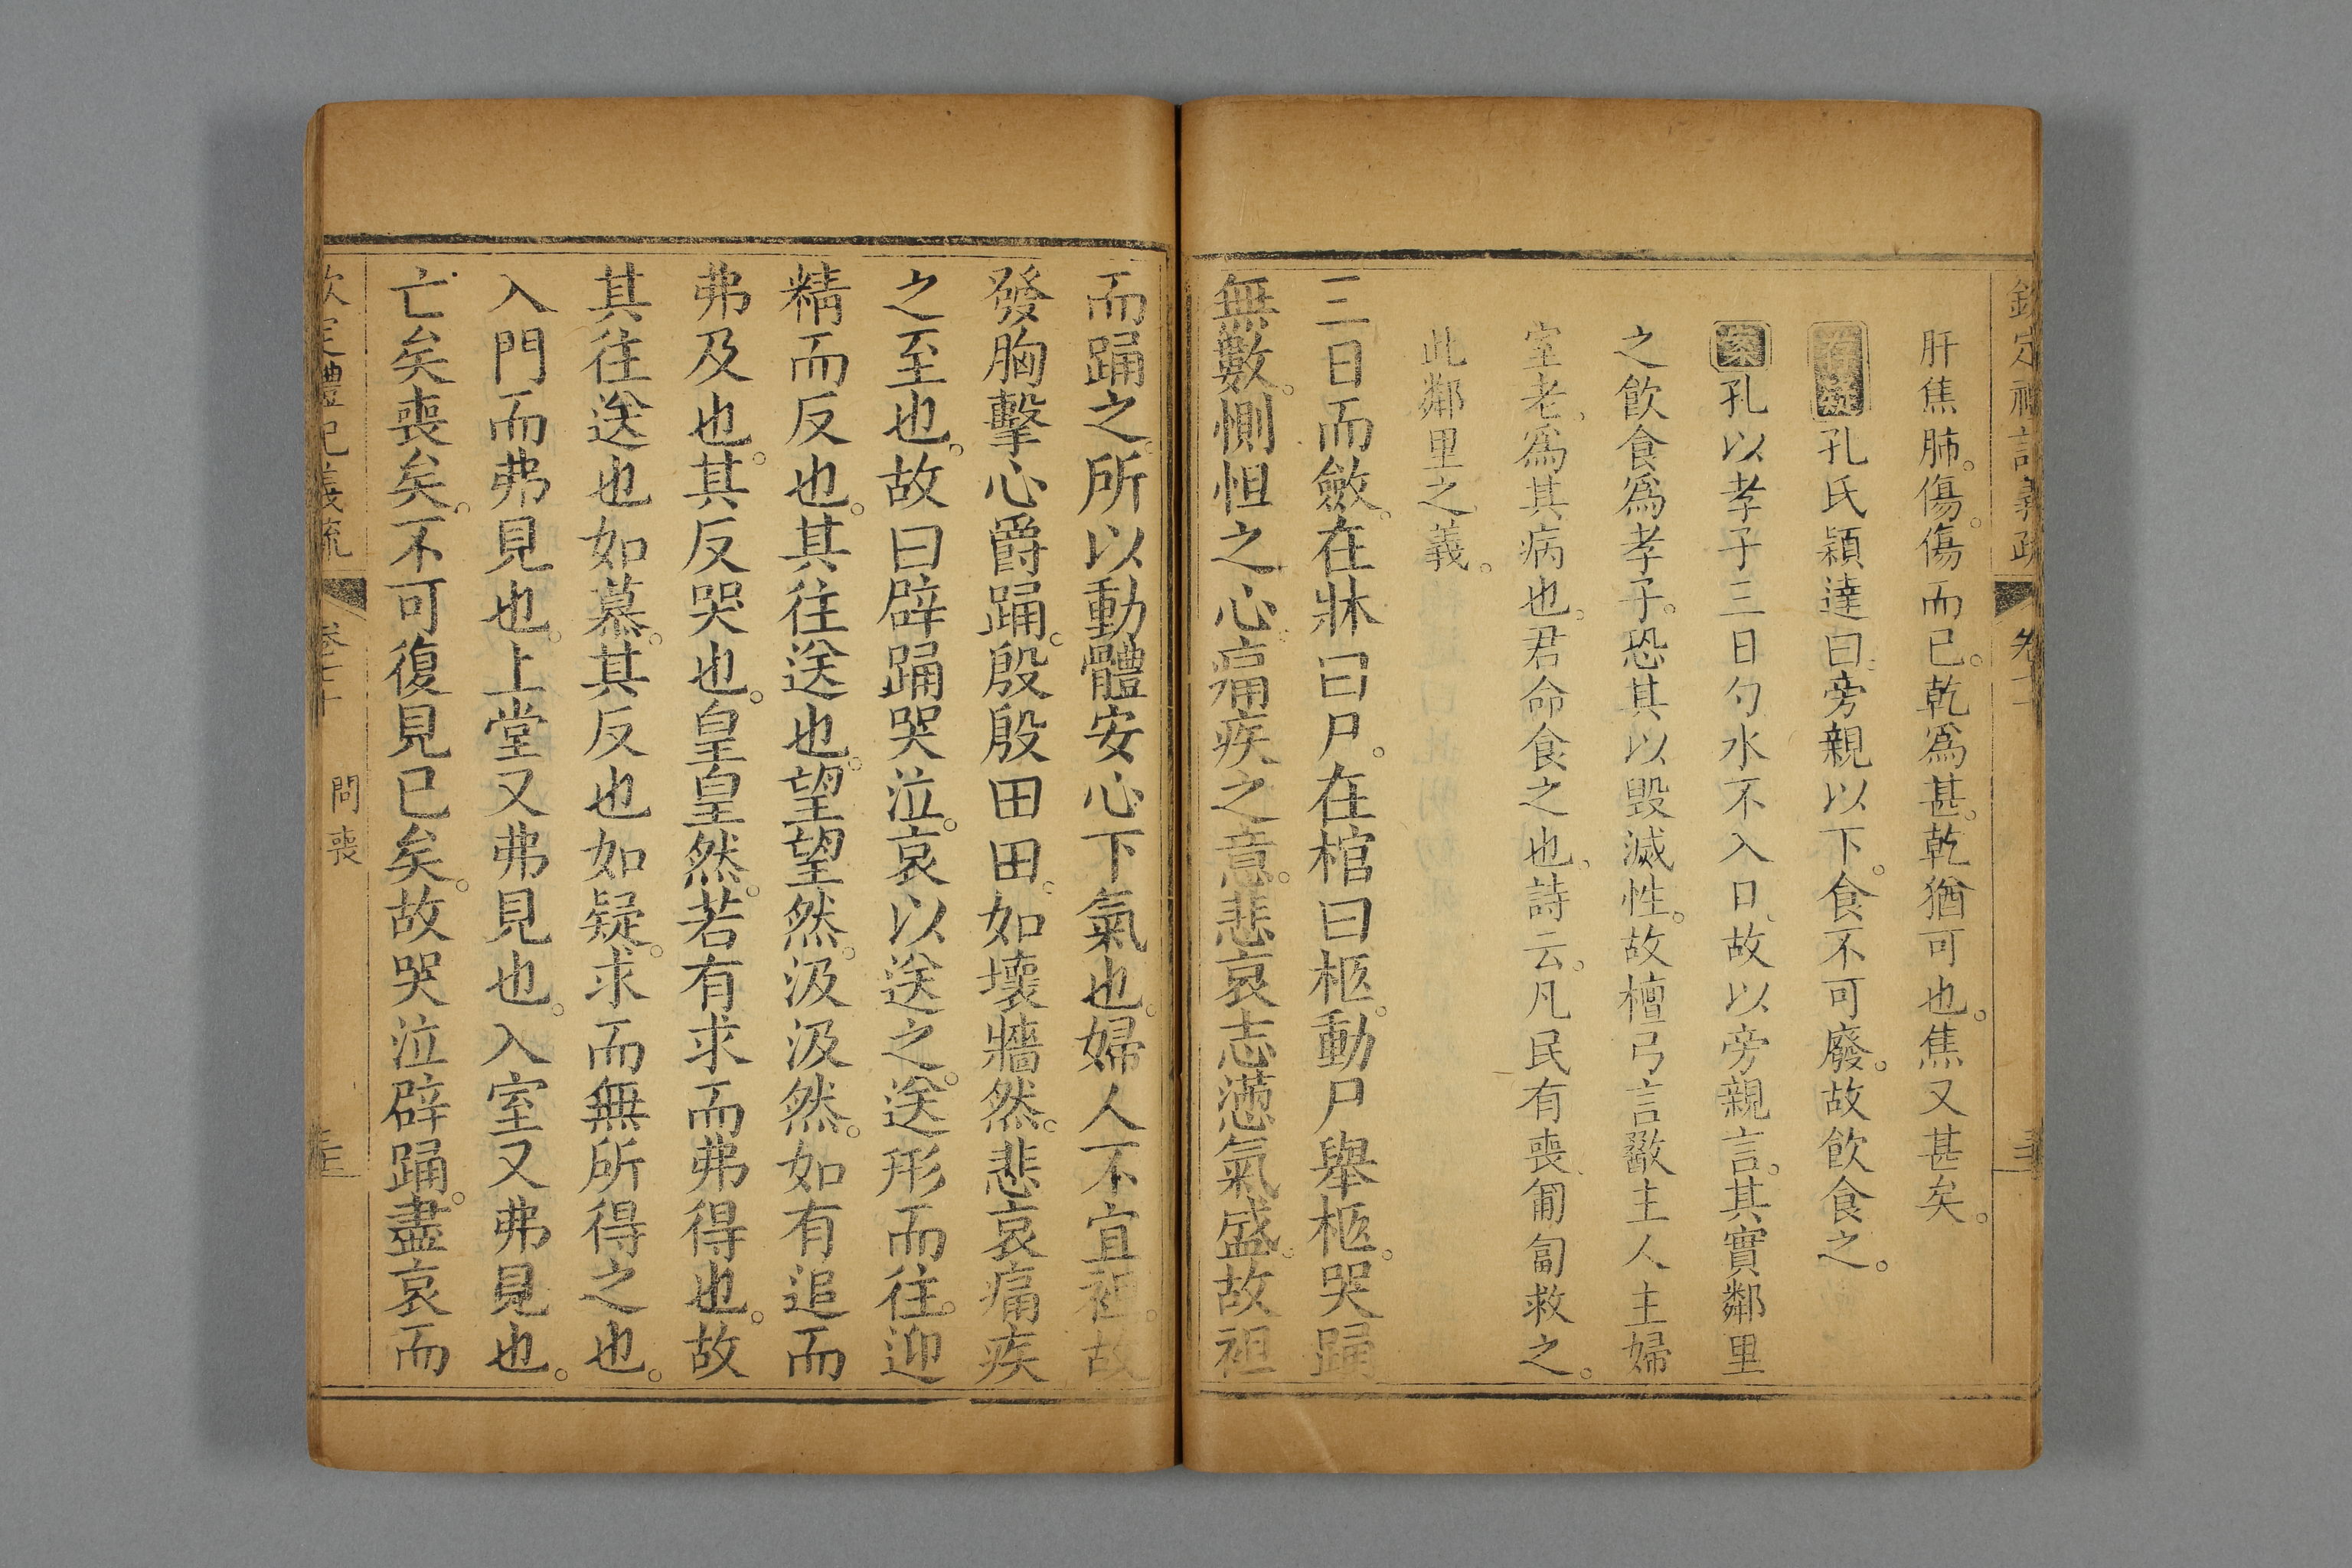 肝焦肺。傷。傷而已。乾爲甚。乾猶可也。焦又甚矣。
孔氏穎達曰。旁親以下。食不可廢。故飲食之。
案孔以孝子三日勺水不入口、故以旁親言。其實鄰里
之飲食爲孝子。恐其以毀滅性。故檀弓言歠主人主婦
室老、爲其病也。君命食之也、詩云。凡民有喪、匍匐救之。
此鄰里之義。
三日而斂。在牀曰尸。在棺曰柩。動尸舉柩。哭踊
無數。惻怛之心。痛疾之意。悲哀志懣氣盛。故袒
而踊之。所以動體安心下氣也。婦人不宜袒。故
發胸擊心爵踊。殷殷田田。如壞牆然。悲哀痛疾
之至也。故曰辟踊哭泣。哀以送之。送形而往。迎
精而反也。其往送也。望望然。汲汲然。如有追而
弗及也。其反哭也。皇皇然。若有求而弗得也。故
其往送也如慕。其反也如疑。求而無所得之也。
入門而弗見也。上堂又弗見也。入室又弗見也。
亡矣喪矣。不可復見已矣。故哭泣辟踊。盡哀而
問喪